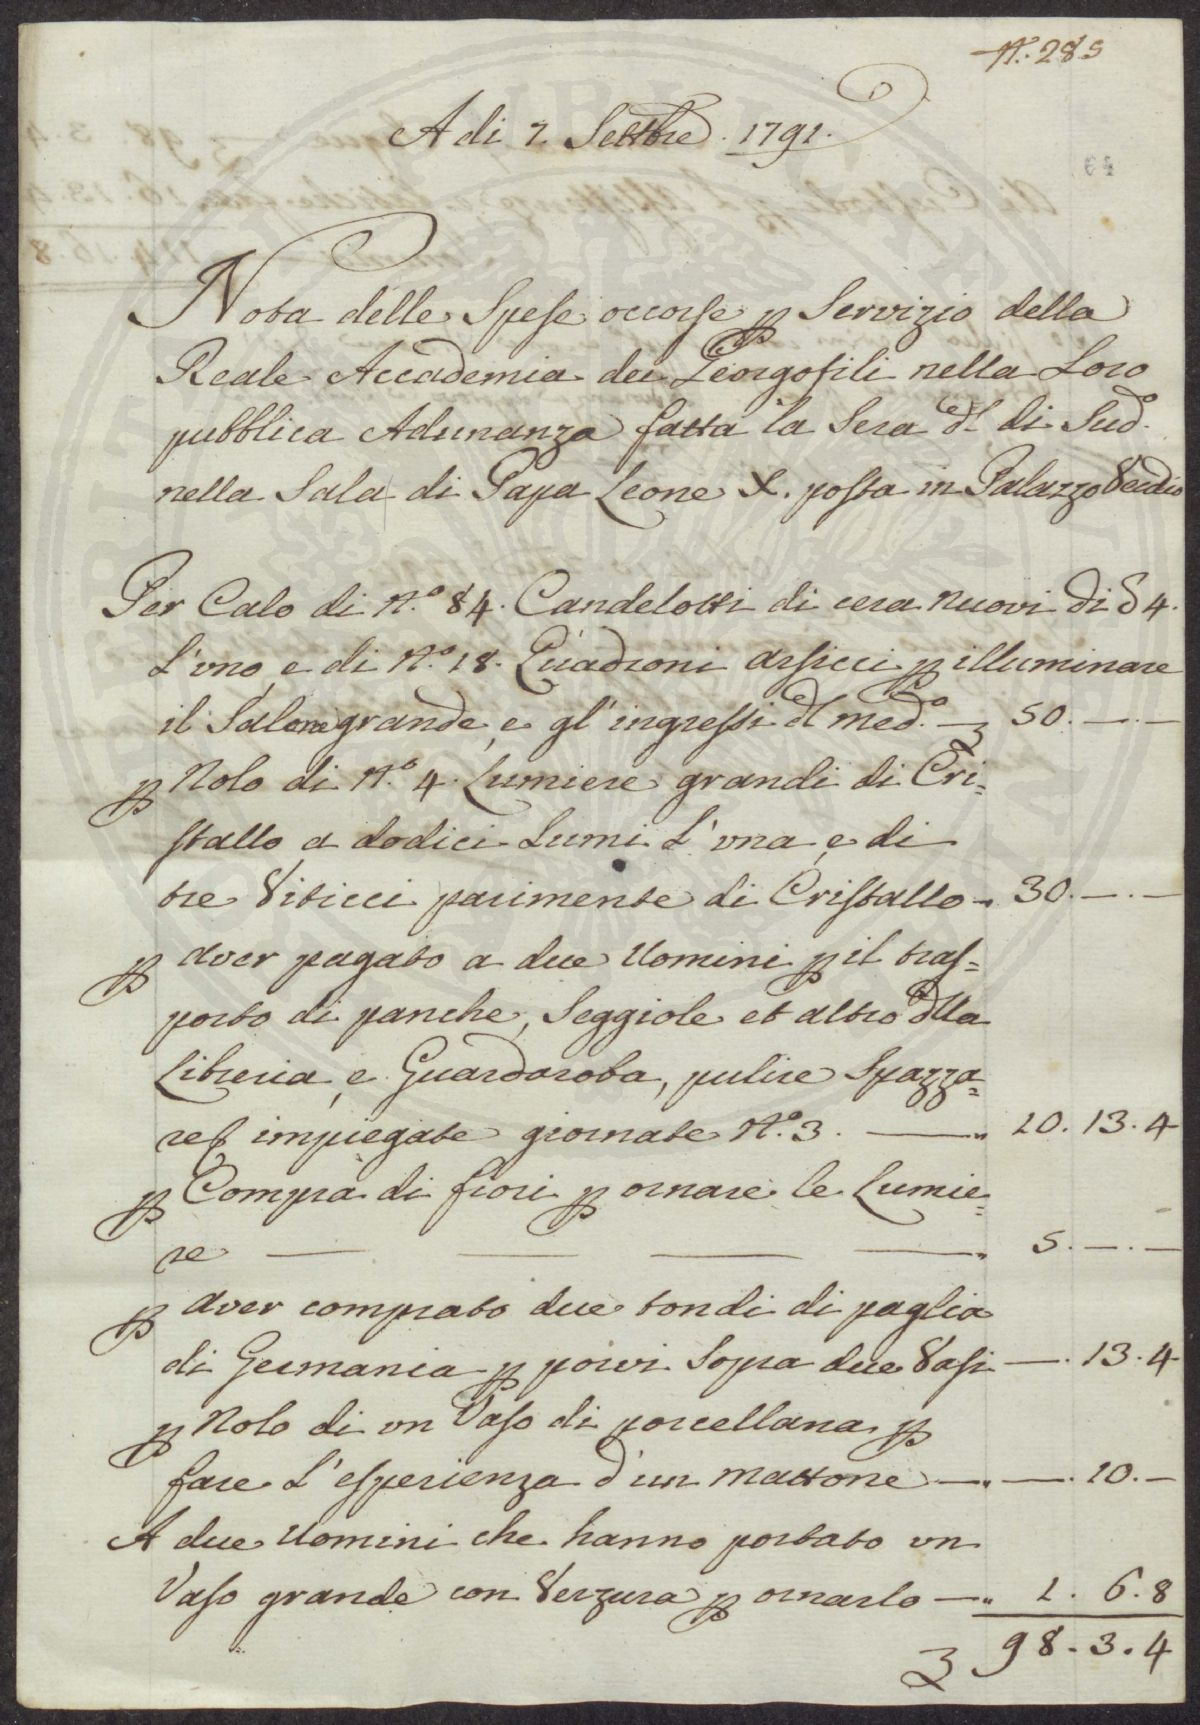 N.° 285
A di 7 Settbre. 1791.
Nota delle Spese occorse p Servizio della
Reale Accademia dei Georgofili nella Loro
pubblica Adunanza fatta la Sera dl di Sud.°
nella Sala di Papa Leone X. posta in Palazzo Vecchio
Per Calo di N.° 84. Candelotti di cera nuovi di 4.
L'uno, e di N.° 18. Quadroni arsicci p illuminare
il Salone grande, e gl'ingressi dl med.° — 50. —. —
p Nolo di N.° 4. Lumiere grandi di Cri=
stallo, a dodici Lumi L'una, e di
tre Viticci parimente di Cristallo „ 30. —. —
p aver pagato a due Uomini p il tras=
porto di panche, Seggiole et altro dlla
Libreria, e Guardaroba, pulire Spazza=
re impiegate giornate N.° 3. — „ 10. 13. 4
p Compra di fiori p ornare le Lumie=
re — — — — „ 5. —. —
p aver comprato due tondi di paglia
di Germania p porvi Sopra due Vasi —. 13. 4
p Nolo di un Vaso di porcellana p
fare L'esperienza d'un mattone — „ —. 10. —
A due Uomini che hanno portato un
Vaso grande con Verzura p ornarlo — „ 1. 6. 8
98. 3. 4